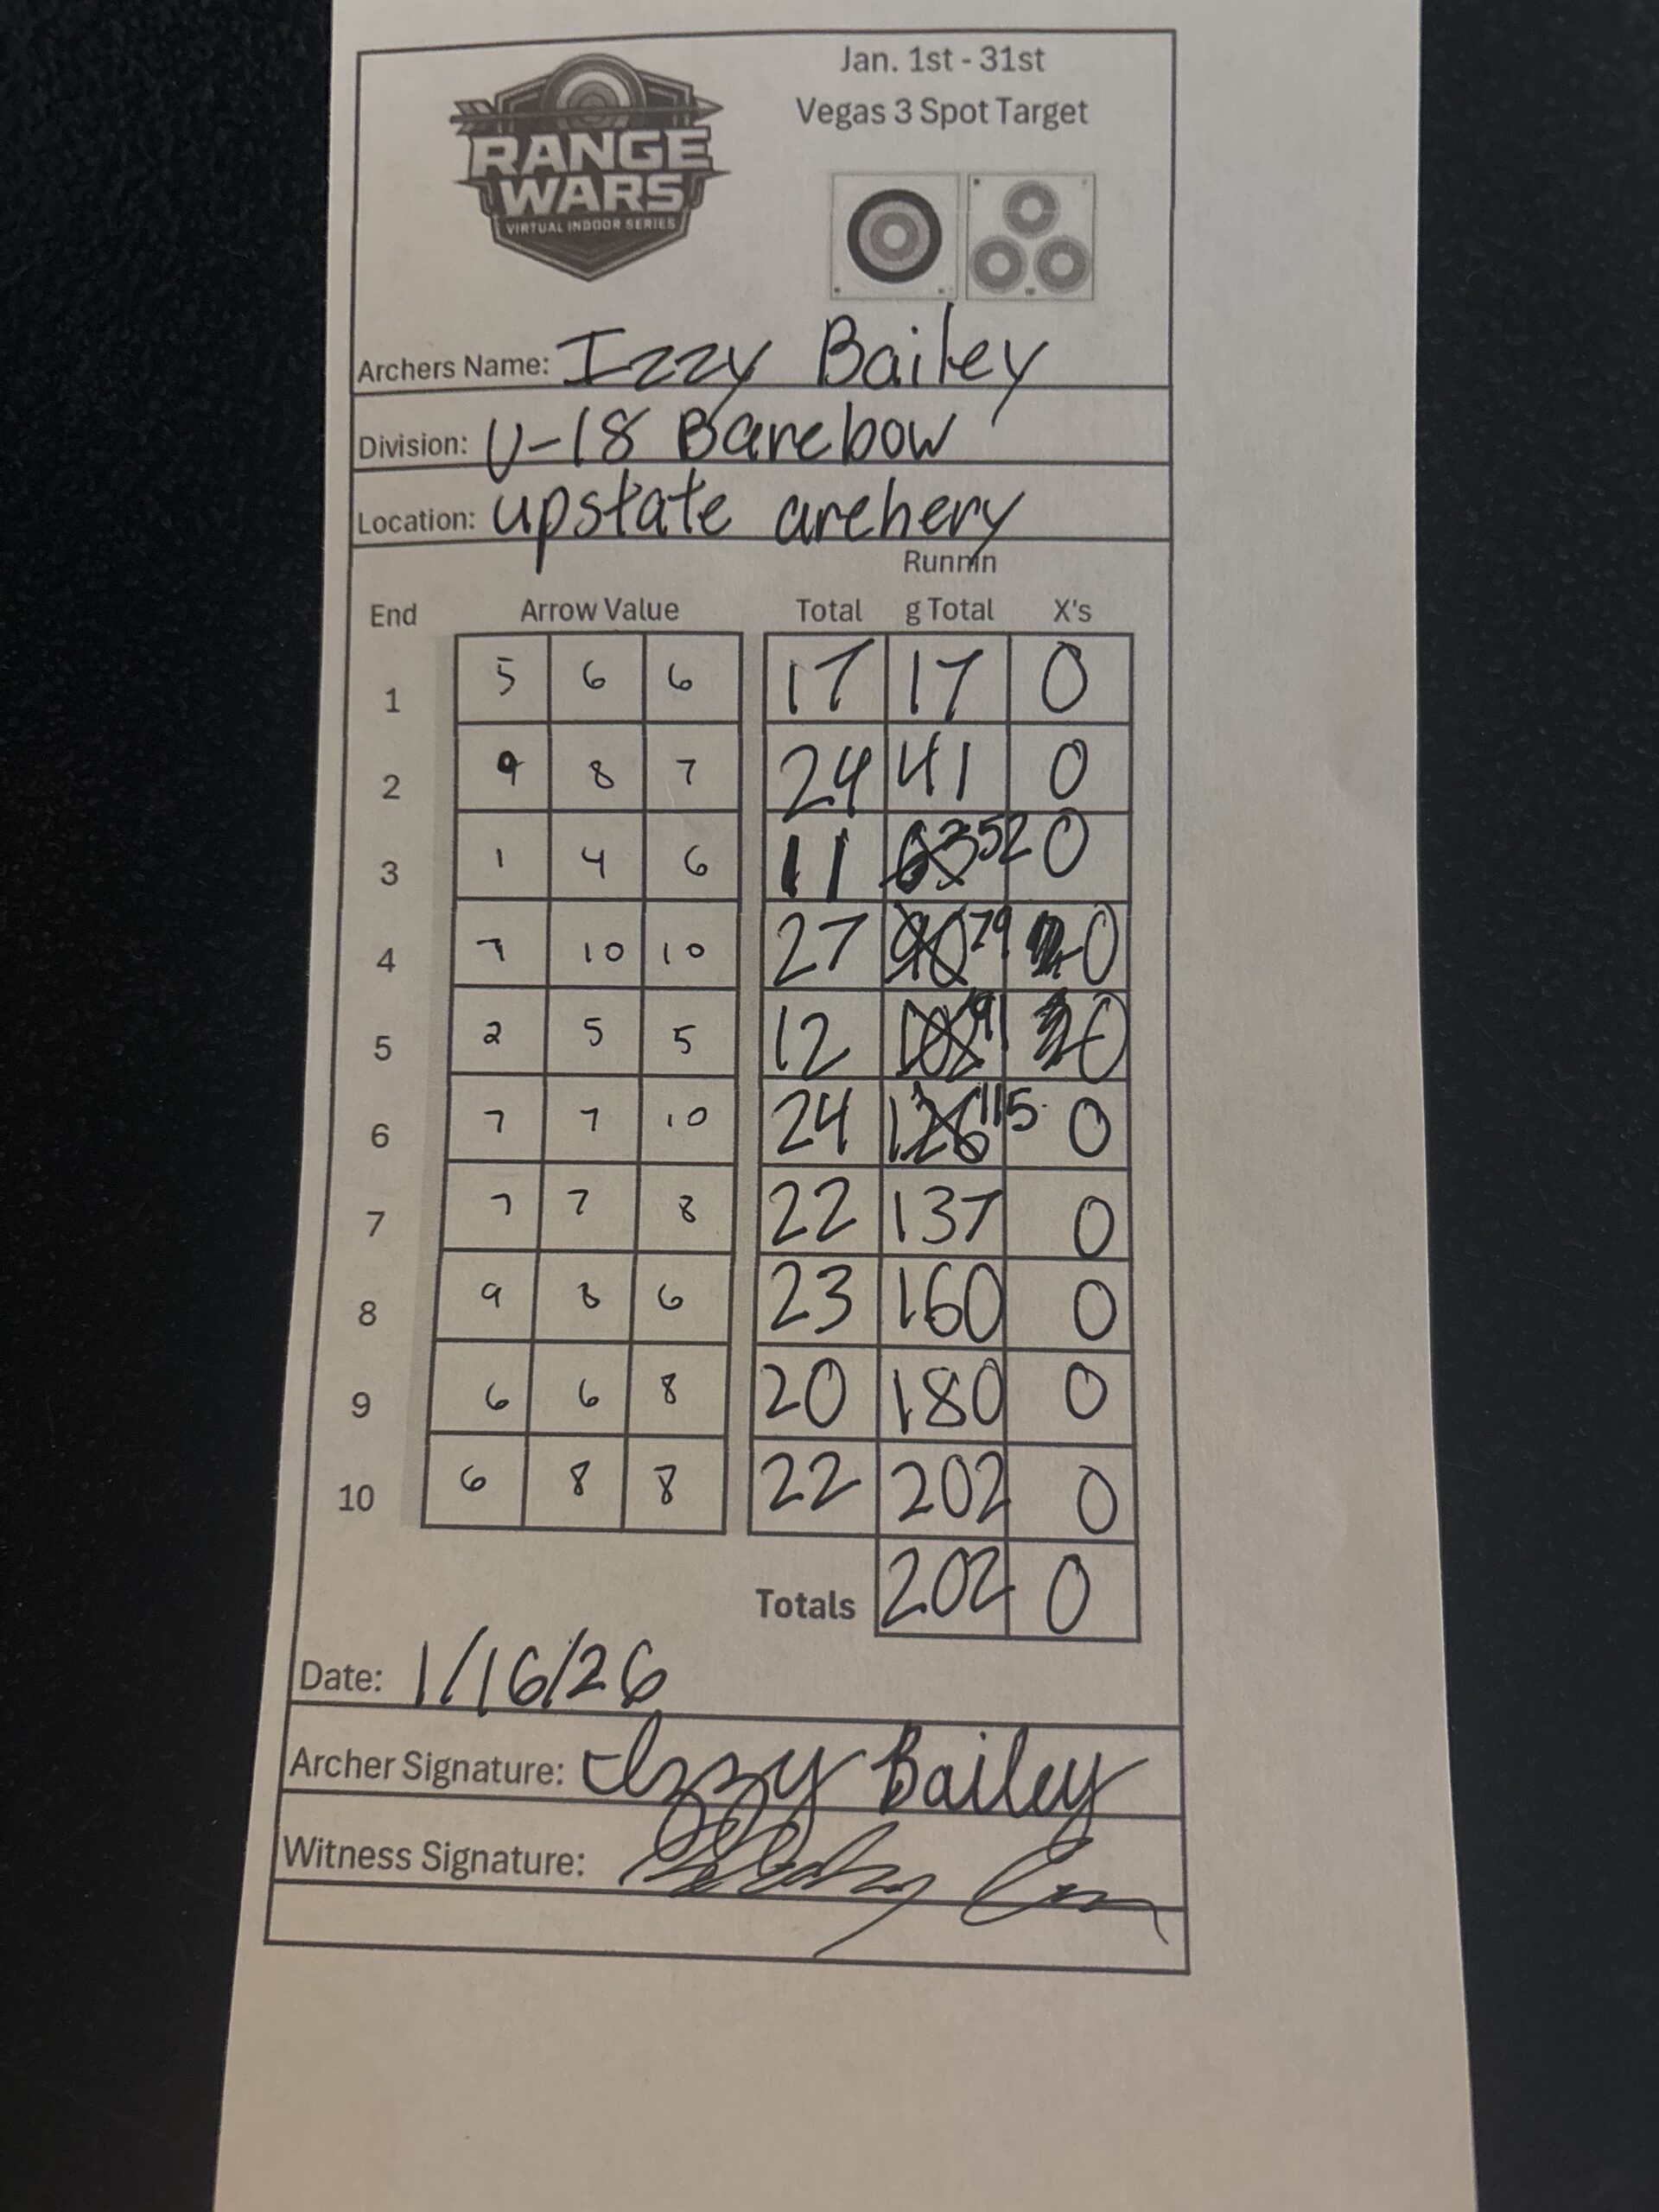 Jan. 1st - 31st
Vegas 3 Spot Target
RANGE
WARS
VIRTUAL INDOOR SERIES
Archers Name: Izzy Bailey
Division: U-18 Barebow
Location: upstate archery
Runnin
End Arrow Value Total g Total X's
1 5 6 6 17 17 0
2 9 8 7 24 41 0
3 1 4 6 11 63 52 0
4 7 10 10 27 90 79 0
5 2 5 5 12 102 91 0
6 7 7 10 24 126 115 0
7 7 7 8 22 137 0
8 9 8 6 23 160 0
9 6 6 8 20 180 0
10 6 8 8 22 202 0
Totals 202 0
Date: 1/16/26
Archer Signature: Izzy Bailey
Witness Signature: